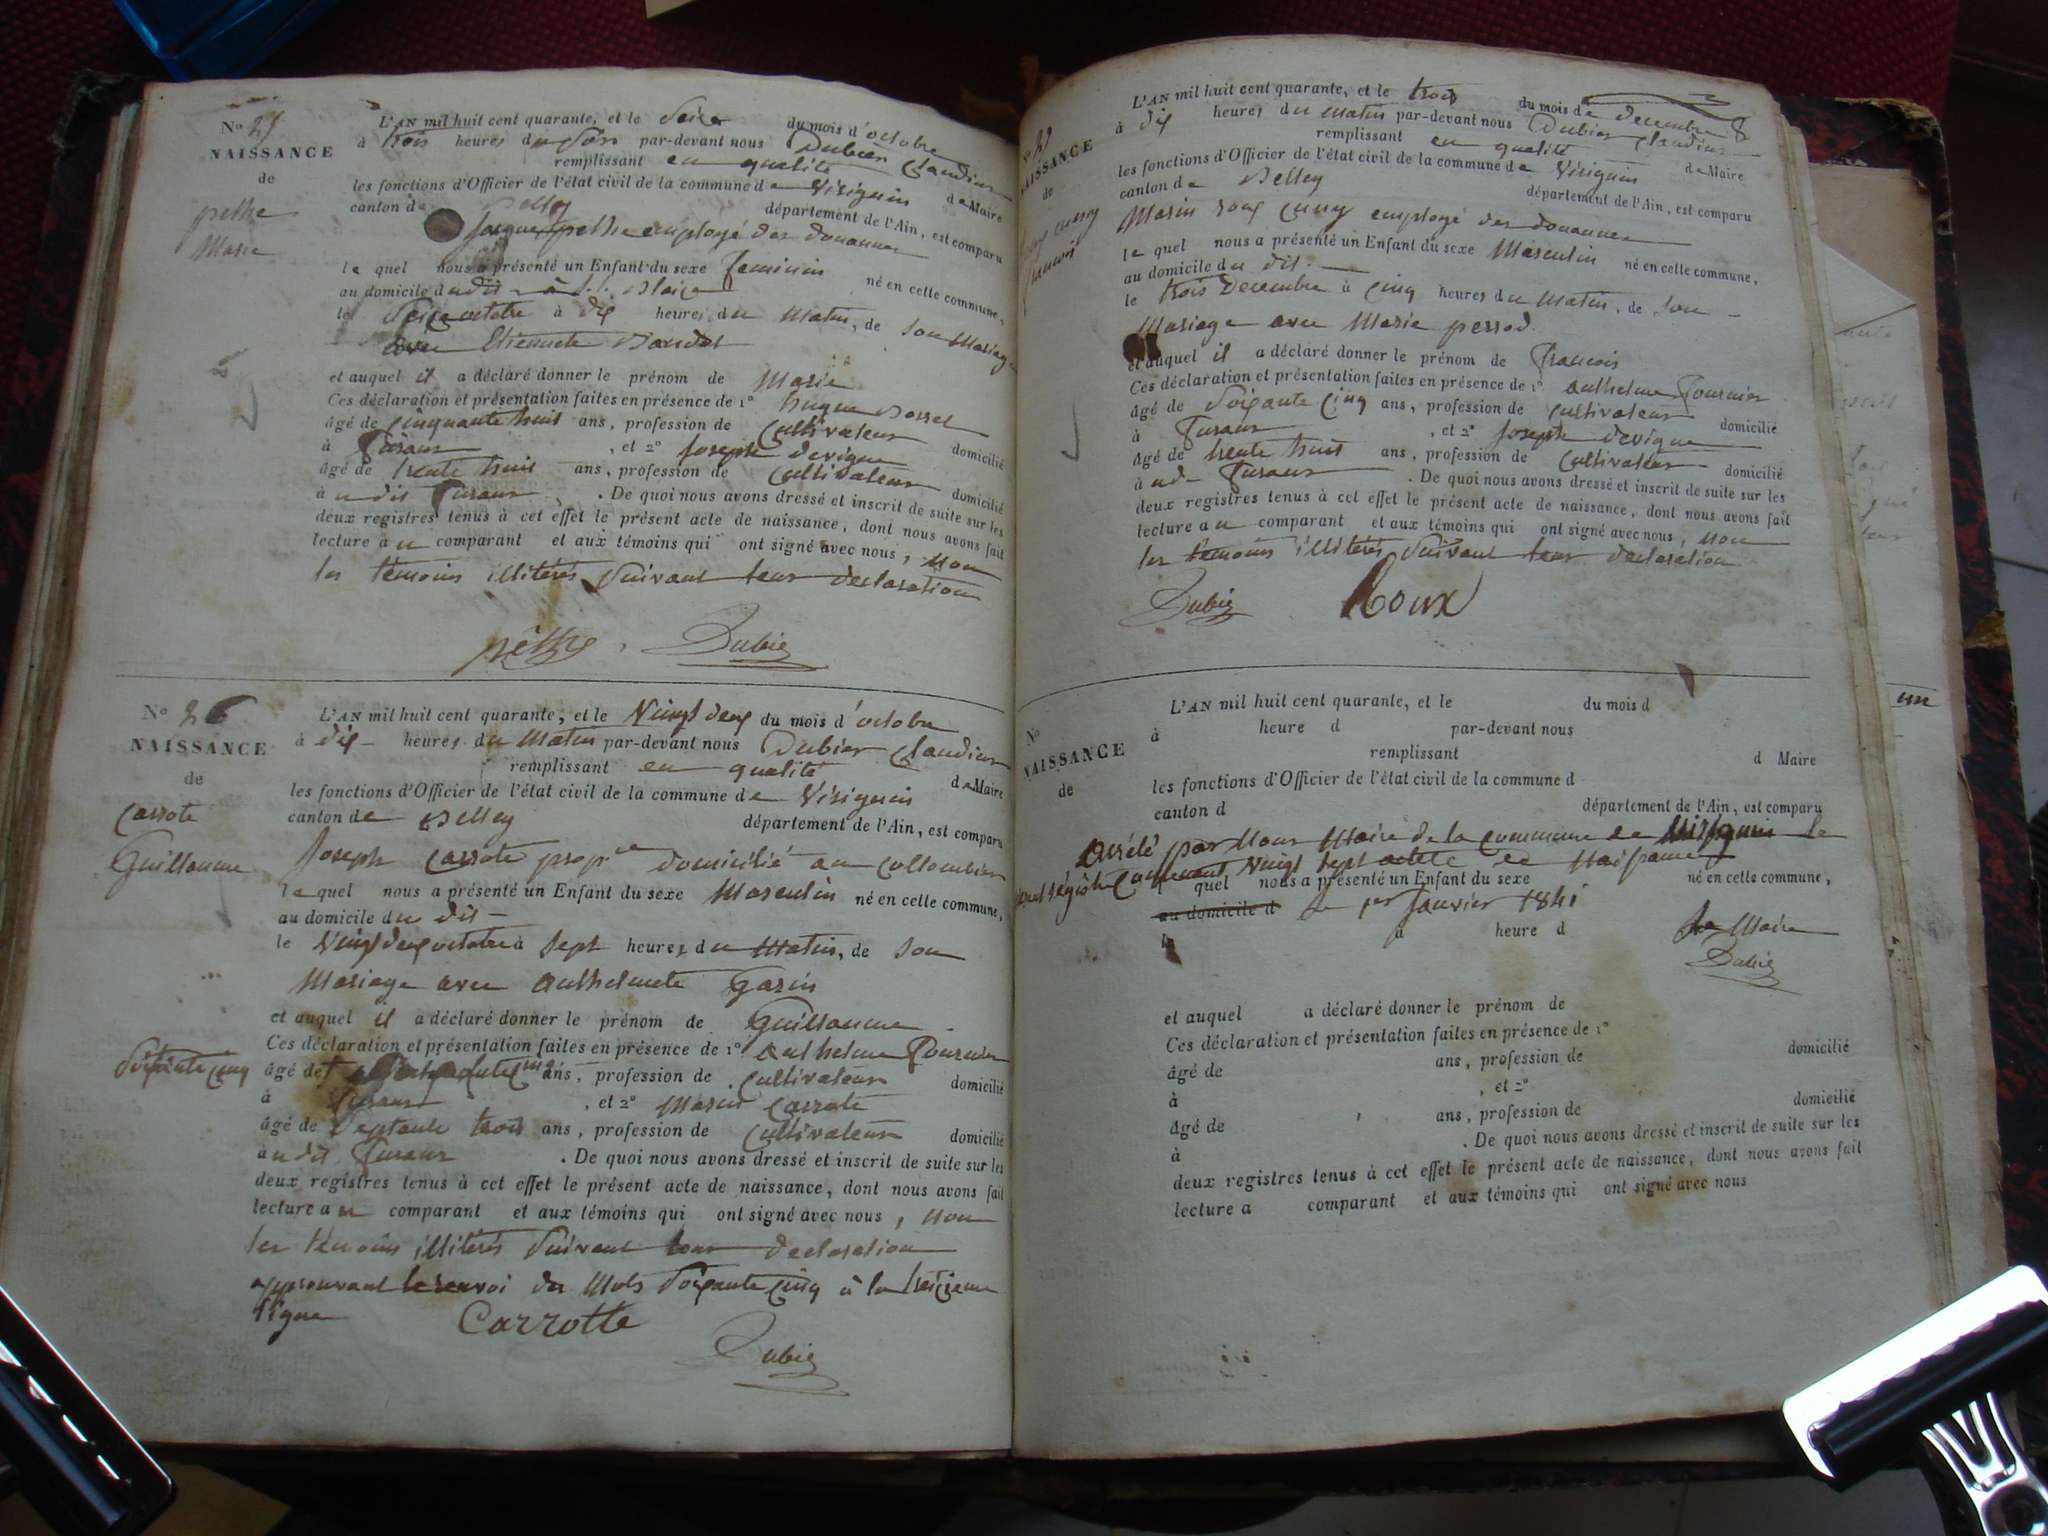 No 25
NAISSANCE
de
pethe
Marie
L'AN mil huit cent quarante, et le Seize du mois d'octobre
à trois heures du Soir par-devant nous Dubier Claudius
remplissant en qualité de Maire
les fonctions d'Officier de l'état civil de la commune de Virignin
canton de Belley département de l'Ain, est comparu
employé des douannes
le quel nous a présenté un Enfant du sexe feminin né en cette commune,
au domicile du dit
le Seize octobre à dix heures du Matin, de Son Mariage
avec Etiennete
et auquel il a déclaré donner le prénom de Marie
Ces déclaration et présentation faites en présence de 1°
âgé de cinquante huit ans, profession de Cultivateur domicilié
à , et 2° Joseph devigne
âgé de trente huit ans, profession de Cultivateur domicilié
à u dit . De quoi nous avons dressé et inscrit de suite sur les
deux registres tenus à cet effet le présent acte de naissance, dont nous avons fait
lecture au comparant et aux témoins qui ont signé avec nous, non
les témoins illitérés Suivant leur declaration
Dubier
No 26
NAISSANCE
de
Carrote
Guillaume
L'AN mil huit cent quarante, et le Vingt deux du mois d'octobre
à dix heures du Matin par-devant nous Dubier Claudius
remplissant en qualité de Maire
les fonctions d'Officier de l'état civil de la commune de Virignin
canton de Belley département de l'Ain, est comparu
Joseph Carrote domicilié au Collombier
le quel nous a présenté un Enfant du sexe Masculin né en cette commune,
au domicile du dit
le Vingt deux octobre à Sept heures du Matin, de Son
Mariage avec Anthelmete Garin
et auquel il a déclaré donner le prénom de Guillaume
Ces déclaration et présentation faites en présence de 1° Anthelme Fournier
Soixante Cinq
âgé de ans, profession de Cultivateur domicilié
à , et 2° Carrote
âgé de Septante trois ans, profession de Cultivateur domicilié
à u dit . De quoi nous avons dressé et inscrit de suite sur les
deux registres tenus à cet effet le présent acte de naissance, dont nous avons fait
lecture au comparant et aux témoins qui ont signé avec nous, non
les témoins illitérés Suivant leur declaration
approuvant le renvoi des Mots Soixante Cinq à la treizieme
ligne
Carrotte
Dubier
NAISSANCE
de
L'AN mil huit cent quarante, et le trois du mois de decembre
à dix heures du matin par-devant nous Dubier Claudius
remplissant en qualité de Maire
les fonctions d'Officier de l'état civil de la commune de Virignin
canton de Belley département de l'Ain, est comparu
Marin employé des douannes
le quel nous a présenté un Enfant du sexe Masculin né en cette commune,
au domicile du dit
le trois Decembre à Cinq heures du Matin, de Son
Mariage avec Marie perrod
et auquel il a déclaré donner le prénom de Francois
Ces déclaration et présentation faites en présence de 1° Anthelme Fournier
âgé de Soixante Cinq ans, profession de Cultivateur domicilié
à , et 2° Joseph devigne
âgé de trente huit ans, profession de Cultivateur domicilié
à ud . De quoi nous avons dressé et inscrit de suite sur les
deux registres tenus à cet effet le présent acte de naissance, dont nous avons fait
lecture au comparant et aux témoins qui ont signé avec nous, non
les témoins illitérés Suivant leur declaration
Dubier Roux
No
NAISSANCE
de
L'AN mil huit cent quarante, et le du mois d
à heure d par-devant nous
remplissant d Maire
les fonctions d'Officier de l'état civil de la commune d
canton d département de l'Ain, est comparu
Arrété par Nous Maire de la Commune de Virignin le
Vingt Sept acte de Naissance
quel nous a présenté un Enfant du sexe né en cette commune,
au domicile d Le 1er Janvier 1841
le à heure d
Le Maire
Dubier
et auquel a déclaré donner le prénom de
Ces déclaration et présentation faites en présence de 1°
âgé de ans, profession de domicilié
à , et 2°
âgé de ans, profession de domicilié
à . De quoi nous avons dressé et inscrit de suite sur les
deux registres tenus à cet effet le présent acte de naissance, dont nous avons fait
lecture a comparant et aux témoins qui ont signé avec nous
un